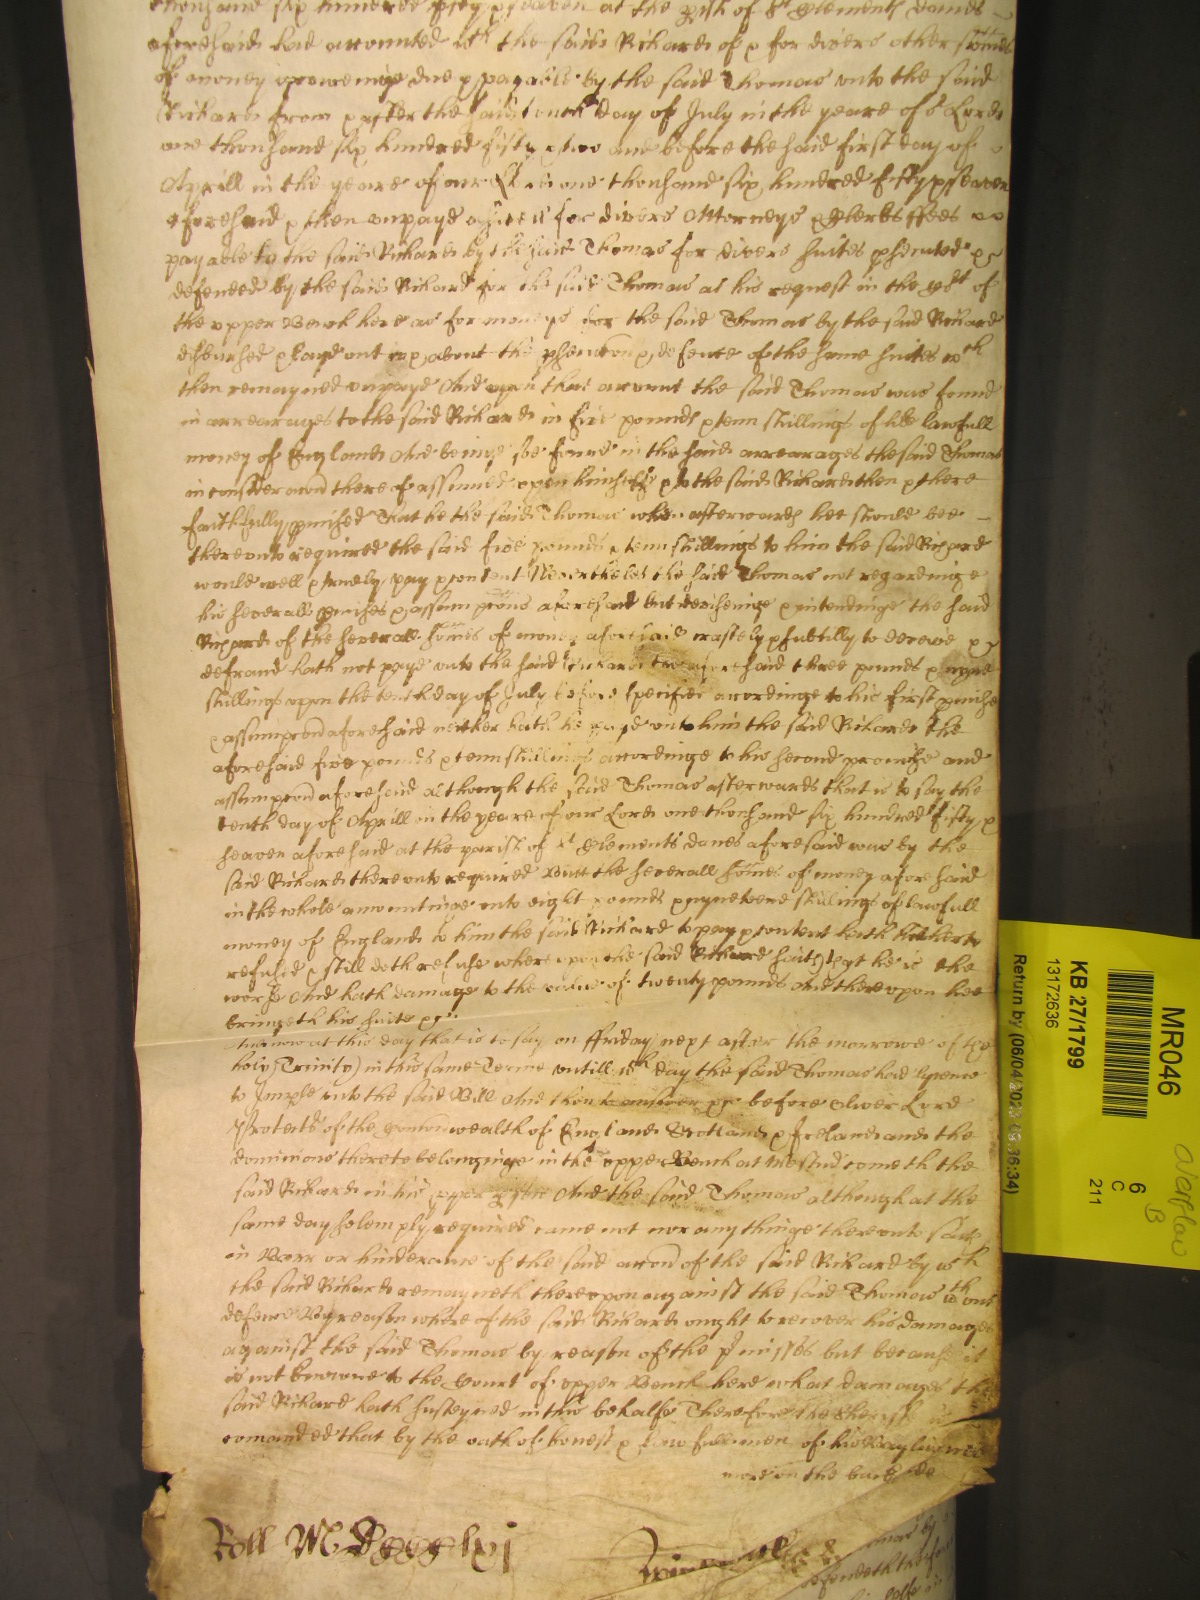 thousand six hundred fifty & seaven at the pish of St Clements danes
aforesaid had accounted wth the said Richard of & for divers other somes
of money & due & payable by the said Thomas unto the said
Richard from & after the said tenth day of July in the yeare of or Lord
one thousand six hundred fifty & two and before the said first day of
Aprill in the yeare of our Lord one thousand six hundred fifty & seaven
aforesaid & then unpayd as well for divers Attorneys & Clerks ffees
payable to the said Richard by the said Thomas for divers suites psecuted &
defended by the said Richard for the said Thomas at his request in the Cort of
the upper Bench here as for moneys for the said Thomas by the said Richard
disbursed & layd out in & about the psecucon & defence of the same suites wch
then remayned unpayd And upon that account the said Thomas was found
in arrearages to the said Richard in five pounds & tenn shillings of like lawfull
money of England And beinge soe found in the said arrearages the said Thomas
in consideracon thereof assumed upon himselfe & to the said Richard then & there
faithfully pmised That he the said Thomas when afterwards hee should bee
thereunto required the said five pounds & tenn shillings to him the said Richard
would well & truely pay & content Neverthelesse the said Thomas not regardinge
his severall pmises & assumpcons aforesaid but deviseinge & intendinge the said
Richard of the severall somes of money aforesaid craftely & subtilly to deceive &
defraud hath not payd unto the said Richard the aforesaid three pounds & nyne
shillings upon the tenth day of July before specified accordinge to his first pmise
& assumpcon aforesaid neither hath he payd unto him the said Richard the
aforesaid five pounds & tenn shillings accordinge to his second promise and
assumpcon aforesaid although the said Thomas afterwards that is to say the
tenth day of Aprill in the yeare of our Lord one thousand six hundred fifty &
seaven aforesaid at the parish of St Clements danes aforesaid was by the
said Richard thereunto required Butt the severall somes of money aforesaid
in the whole amountinge unto eight pounds & nyneteene shillings of lawfull
money of England to him the said Richard to pay & content hath hitherto
refused & still doth refuse whereupon the said Richard saith that he is the
worse And hath damage to the value of twenty pounds And thereupon hee
bringeth his suite &c
And now at this day that is to say on ffriday next after the morrowe of the
holy Trinity in this same Terme untill wch day the said Thomas had lycence
to Imple unto the said Bill And then to answer &c before Oliver Lord
Protector of the Comonwealth of England Scotland & Ireland and the
dominions thereto belonginge in the upper Bench at Westmr cometh the
said Richard in his pper pson And the said Thomas although at the
same day solemply required came not nor any thinge thereunto saith
in Barr or hinderance of the said accon of the said Richard by wch
the said Richard remayneth thereupon against the said Thomas wthout
defence By reason whereof the said Richard ought to recover his damages
against the said Thomas by reason of the pmisses but because it
is not knowne to the Court of upper Bench here what damages the
said Richard hath susteyned in this behalfe Therefore the Sheriffe is
comanded that by the oath of honest & lawfull men of his Baylywicke
more on the back side
Roll
MR046
KB 27/1799
13172636
6
C
211
Return by (06/04/2023 09:36:34)
B